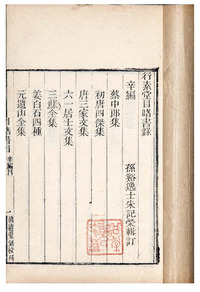 行素堂目睹書錄
辛編
孫谿逸士朱記榮輯訂
蔡中郎集
初唐四傑集
唐三家文集
六一居士文集
三蘇全集
姜白石四種
元遺山全集